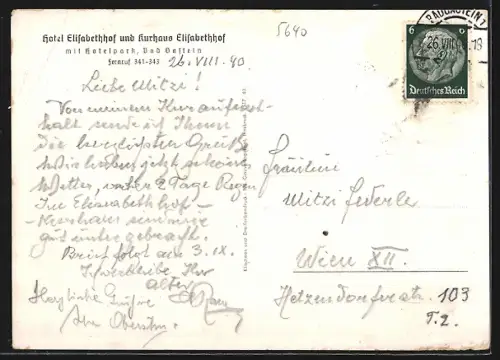 Hotel Elisabethhof und Kurhaus Elisabethhof
mit Hotelpark, Bad Gastein
Fernruf 341-343
26.VIII.40.
5640
BADGASTEIN
26.VIII
18
6 6
Deutsches Reich
Liebe Mitzi!
Von meinem Kuraufent-
halt sende ich Ihnen
die herzlichsten Grüße
Wir haben jetzt schönes
Wetter, 2 Tage Regen
Im Elisabethhof-
Kurhaus sind wir
gut untergebracht.
Brief folgt am 3.IX.
Ich verbleibe Ihr
alter
Herzliche Grüsse
Fräulein
Mitzi Federle
Wien XII.
Hetzendorferstr. 103
T.2.